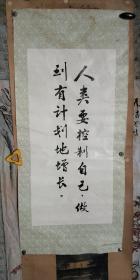 人类要控制自己，做
到有计划地增长。